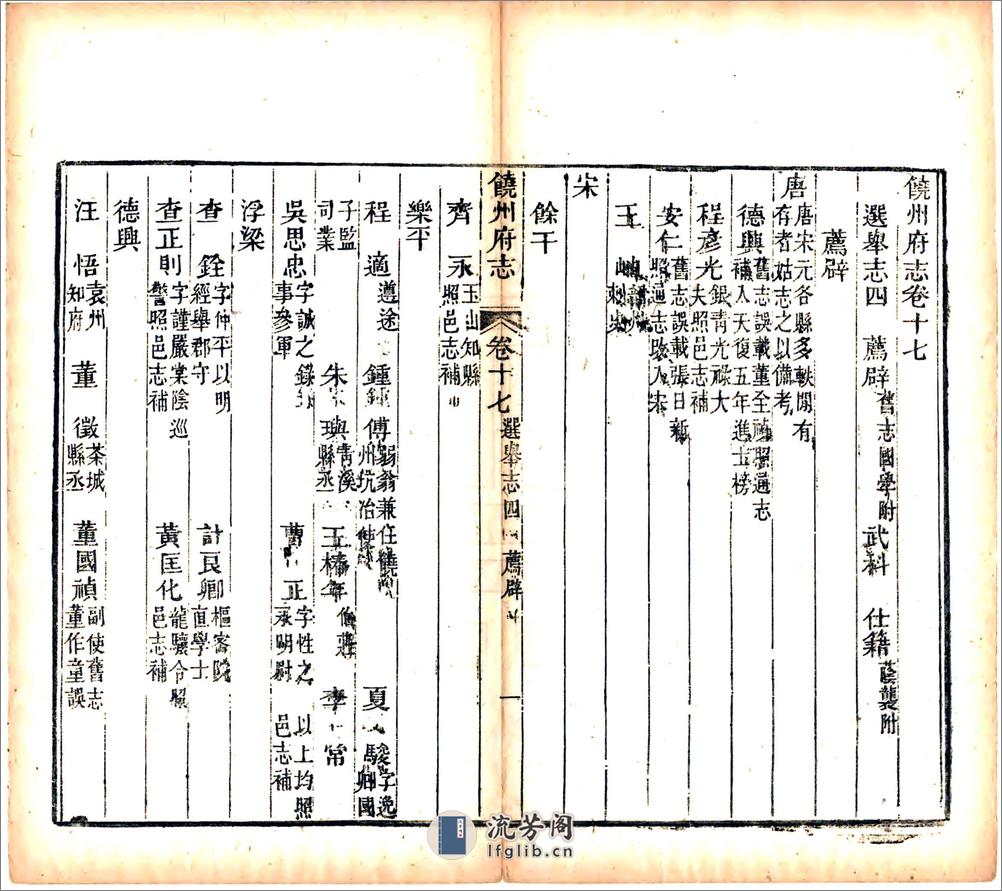 饒州府志卷十七
選舉志四 薦辟舊志國學附 武科 仕籍蔭襲附
薦辟
唐唐宋元各縣多軼間有
有者姑志之以備考
德興舊志誤載董全禎照通志
補入天復五年進士榜
程彥光銀青光祿大
夫照邑志補
安仁舊志誤載張日新
照通志改入宋
王
宋
餘干
饒州府志 卷十七 選舉志四 薦辟 一
齊永玉山知縣
照邑志補
樂平
程適遵途 鍾傅弱翁兼任饒
州抗治使 夏駿字逸
卿國
子監
司業 朱璵青溪
縣丞 王椿年 李常
吳思忠字誠之錄
事參軍 曹正字性之
永明尉 以上均照
邑志補
浮梁
查銓字仲平以明
經舉郡守 計良卿樞密院
直學士
查正則字謹嚴棠陰巡
警照邑志補 黃匡化龍驤令照
邑志補
德興
汪悟袁州
知府 董徵茶城
縣丞 董國禎副使舊志
董作童誤
流芳阁
lfglib.cn